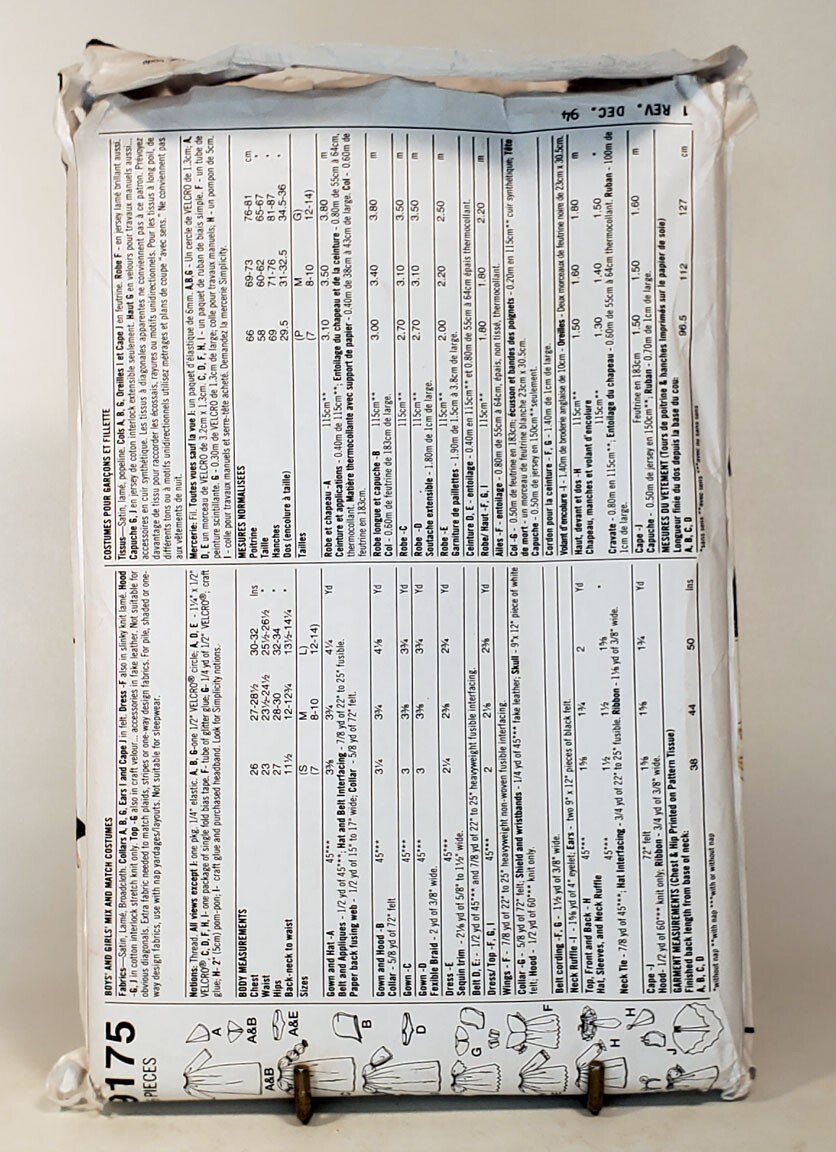 9175
PIECES
A
A&B
A&B
A&E
B
D
G
F
H
H
J
BOYS' AND GIRLS' MIX AND MATCH COSTUMES
Fabrics—Satin, Lamé, Broadcloth. Collars A, B, G, Ears I and Cape J in felt. Dress -F also in slinky knit lamé. Hood
-G, J in cotton interlock stretch knit only. Top -G also in craft velour... accessories in fake leather. Not suitable for
obvious diagonals. Extra fabric needed to match plaids, stripes or one-way design fabrics. For pile, shaded or one-
way design fabrics, use with nap yardages/layouts. Not suitable for sleepwear.
Notions: Thread. All views except J: one pkg. 1/4" elastic. A, B, G-one 1/2" VELCRO® circle; A, D, E - 1¼" x 1/2"
VELCRO®. C, D, F, H, I- one package of single fold bias tape. F- tube of glitter glue; G- 1/4 yd of 1/2" VELCRO®; craft
glue; H- 2" (5cm) pom-pon; I- craft glue and purchased headband. Look for Simplicity notions.
BODY MEASUREMENTS
Chest 26 27-28½ 30-32 Ins
Waist 23 23½-24½ 25½-26½ "
Hips 27 28-30 32-34 "
Back-neck to waist 11½ 12-12¾ 13½-14¼ "
Sizes (S M L)
(7 8-10 12-14)
Gown and Hat -A 45"*** 3⅜ 3¾ 4¼ Yd
Belt and Appliques - 1/2 yd of 45"***; Hat and Belt Interfacing - 7/8 yd of 22" to 25" fusible.
Paper back fusing web - 1/2 yd of 15" to 17" wide; Collar - 5/8 yd of 72" felt.
Gown and Hood -B 45"*** 3¼ 3¾ 4⅛ Yd
Collar - 5/8 yd of 72" felt
Gown -C 45"*** 3 3⅜ 3¾ Yd
Gown -D 45"*** 3 3⅜ 3¾ Yd
Fexible Braid - 2 yd of 3/8" wide.
Dress -E 45"*** 2¼ 2⅜ 2¾ Yd
Sequin Trim - 2⅛ yd of 5/8" to 1½" wide.
Belt D, E - 1/2 yd of 45"*** and 7/8 yd of 22" to 25" heavyweight fusible interfacing.
Dress/ Top -F, G, I 45"*** 2 2⅛ 2⅜ Yd
Wings - F - 7/8 yd of 22" to 25" heavyweight non-woven fusible interfacing.
Collar -G - 5/8 yd of 72" felt; Shield and wristbands - 1/4 yd of 45"*** fake leather; Skull - 9"x 12" piece of white
felt; Hood - 1/2 yd of 60"*** knit only.
Belt cording -F, G - 1½ yd of 3/8" wide.
Neck Ruffle -I - 1⅝ yd of 4" eyelet; Ears - two 9" x 12" pieces of black felt.
Top, Front and Back - H 45"*** 1⅝ 1¾ 2 Yd
Hat, Sleeves, and Neck Ruffle
45"*** 1½ 1½ 1⅝ "
Neck Tie - 7/8 yd of 45"***; Hat Interfacing - 3/4 yd of 22" to 25" fusible. Ribbon - 1⅛ yd of 3/8" wide.
Cape -J 72" felt 1⅝ 1⅝ 1¾ Yd
Hood- 1/2 yd of 60"*** knit only; Ribbon - 3/4 yd of 3/8" wide.
GARMENT MEASUREMENTS (Chest & Hip Printed on Pattern Tissue)
Finished back length from base of neck:
A, B, C, D 38 44 50 Ins
*without nap **with nap ***with or without nap
COSTUMES POUR GARÇONS ET FILLETTE
Tissus—Satin, lamé, popeline. Cols A, B, G, Oreilles I et Cape J en feutrine. Robe F - en jersey lamé brillant aussi.
Capuche G, J en jersey de coton interlock extensible seulement. Haut G en velours pour travaux manuels aussi...
accessoires en cuir synthétique. Les tissus à diagonales apparentes ne conviennent pas à ce patron. Prévoyez
davantage de tissu pour raccorder les écossais, rayures ou motifs unidirectionnels. Pour les tissus à long poil, de
différents tons ou à motifs unidirectionnels utilisez métrages et plans de coupe "avec sens." Ne conviennent pas
aux vêtements de nuit.
Mercerie: Fil. Toutes vues sauf la vue J: un paquet d'élastique de 6mm. A,B,G - Un cercle de VELCRO de 1.3cm; A,
D, E un morceau de VELCRO de 3.2cm x 1.3cm. C, D, F, H, I - un paquet de ruban de biais simple. F - un tube de
peinture scintillante. G - 0.30m de VELCRO de 1.3cm de large; colle pour travaux manuels; H - un pompon de 5cm.
I - colle pour travaux manuels et serre-tête acheté. Demandez la mercerie Simplicity.
MESURES NORMALISÉES
Poitrine 66 69-73 76-81 cm
Taille 58 60-62 65-67 "
Hanches 69 71-76 81-87 "
Dos (encolure à taille) 29.5 31-32.5 34.5-36 "
Tailles (P M G)
(7 8-10 12-14)
Robe et chapeau -A 115cm** 3.10 3.50 3.80 m
Ceinture et applications - 0.40m de 115cm**; Entoilage du chapeau et de la ceinture - 0.80m de 55cm à 64cm,
thermocollant. Matière thermocollante avec support de papier - 0.40m de 38cm à 43cm de large. Col - 0.60m de
feutrine en 183cm.
Robe longue et capuche -B 115cm** 3.00 3.40 3.80 m
Col - 0.60m de feutrine de 183cm de large.
Robe -C 115cm** 2.70 3.10 3.50 m
Robe -D 115cm** 2.70 3.10 3.50 m
Soutache extensible - 1.80m de 1cm de large.
Robe -E 115cm** 2.00 2.20 2.50 m
Garniture de paillettes - 1.90m de 1.5cm à 3.8cm de large.
Ceinture D, E - entoilage - 0.40m en 115cm** et 0.80m de 55cm à 64cm épais thermocollant.
Robe/ Haut -F, G, I 115cm** 1.80 1.80 2.20 m
Ailes - F - entoilage - 0.80m de 55cm à 64cm, épais, non tissé, thermocollant.
Col -G - 0.50m de feutrine en 183cm; écusson et bandes des poignets - 0.20m en 115cm** cuir synthétique; Tête
de mort - un morceau de feutrine blanche 23cm x 30.5cm.
Capuche - 0.50m de jersey en 150cm**seulement.
Cordon pour la ceinture - F, G - 1.40m de 1cm de large.
Volant d'encolure - I - 1.40m de broderie anglaise de 10cm - Oreilles - Deux morceaux de feutrine noire de 23cm x 30.5cm.
Haut, devant et dos -H 115cm** 1.50 1.60 1.80 m
Chapeau, manches et volant d'encolure
115cm** 1.30 1.40 1.50 "
Cravate - 0.80m en 115cm**; Entoilage du chapeau - 0.60m de 55cm à 64cm thermocollant. Ruban - 100m de
1cm de large.
Cape -J Feutrine en 183cm 1.50 1.50 1.60 m
Capuche - 0.50m de jersey en 150cm**; Ruban - 0.70m de 1cm de large.
MESURES DU VETEMENT (Tours de poitrine & hanches imprimés sur le papier de soie)
Longueur finie du dos depuis la base du cou:
A, B, C, D 96.5 112 127 cm
1 REV. DEC. 94